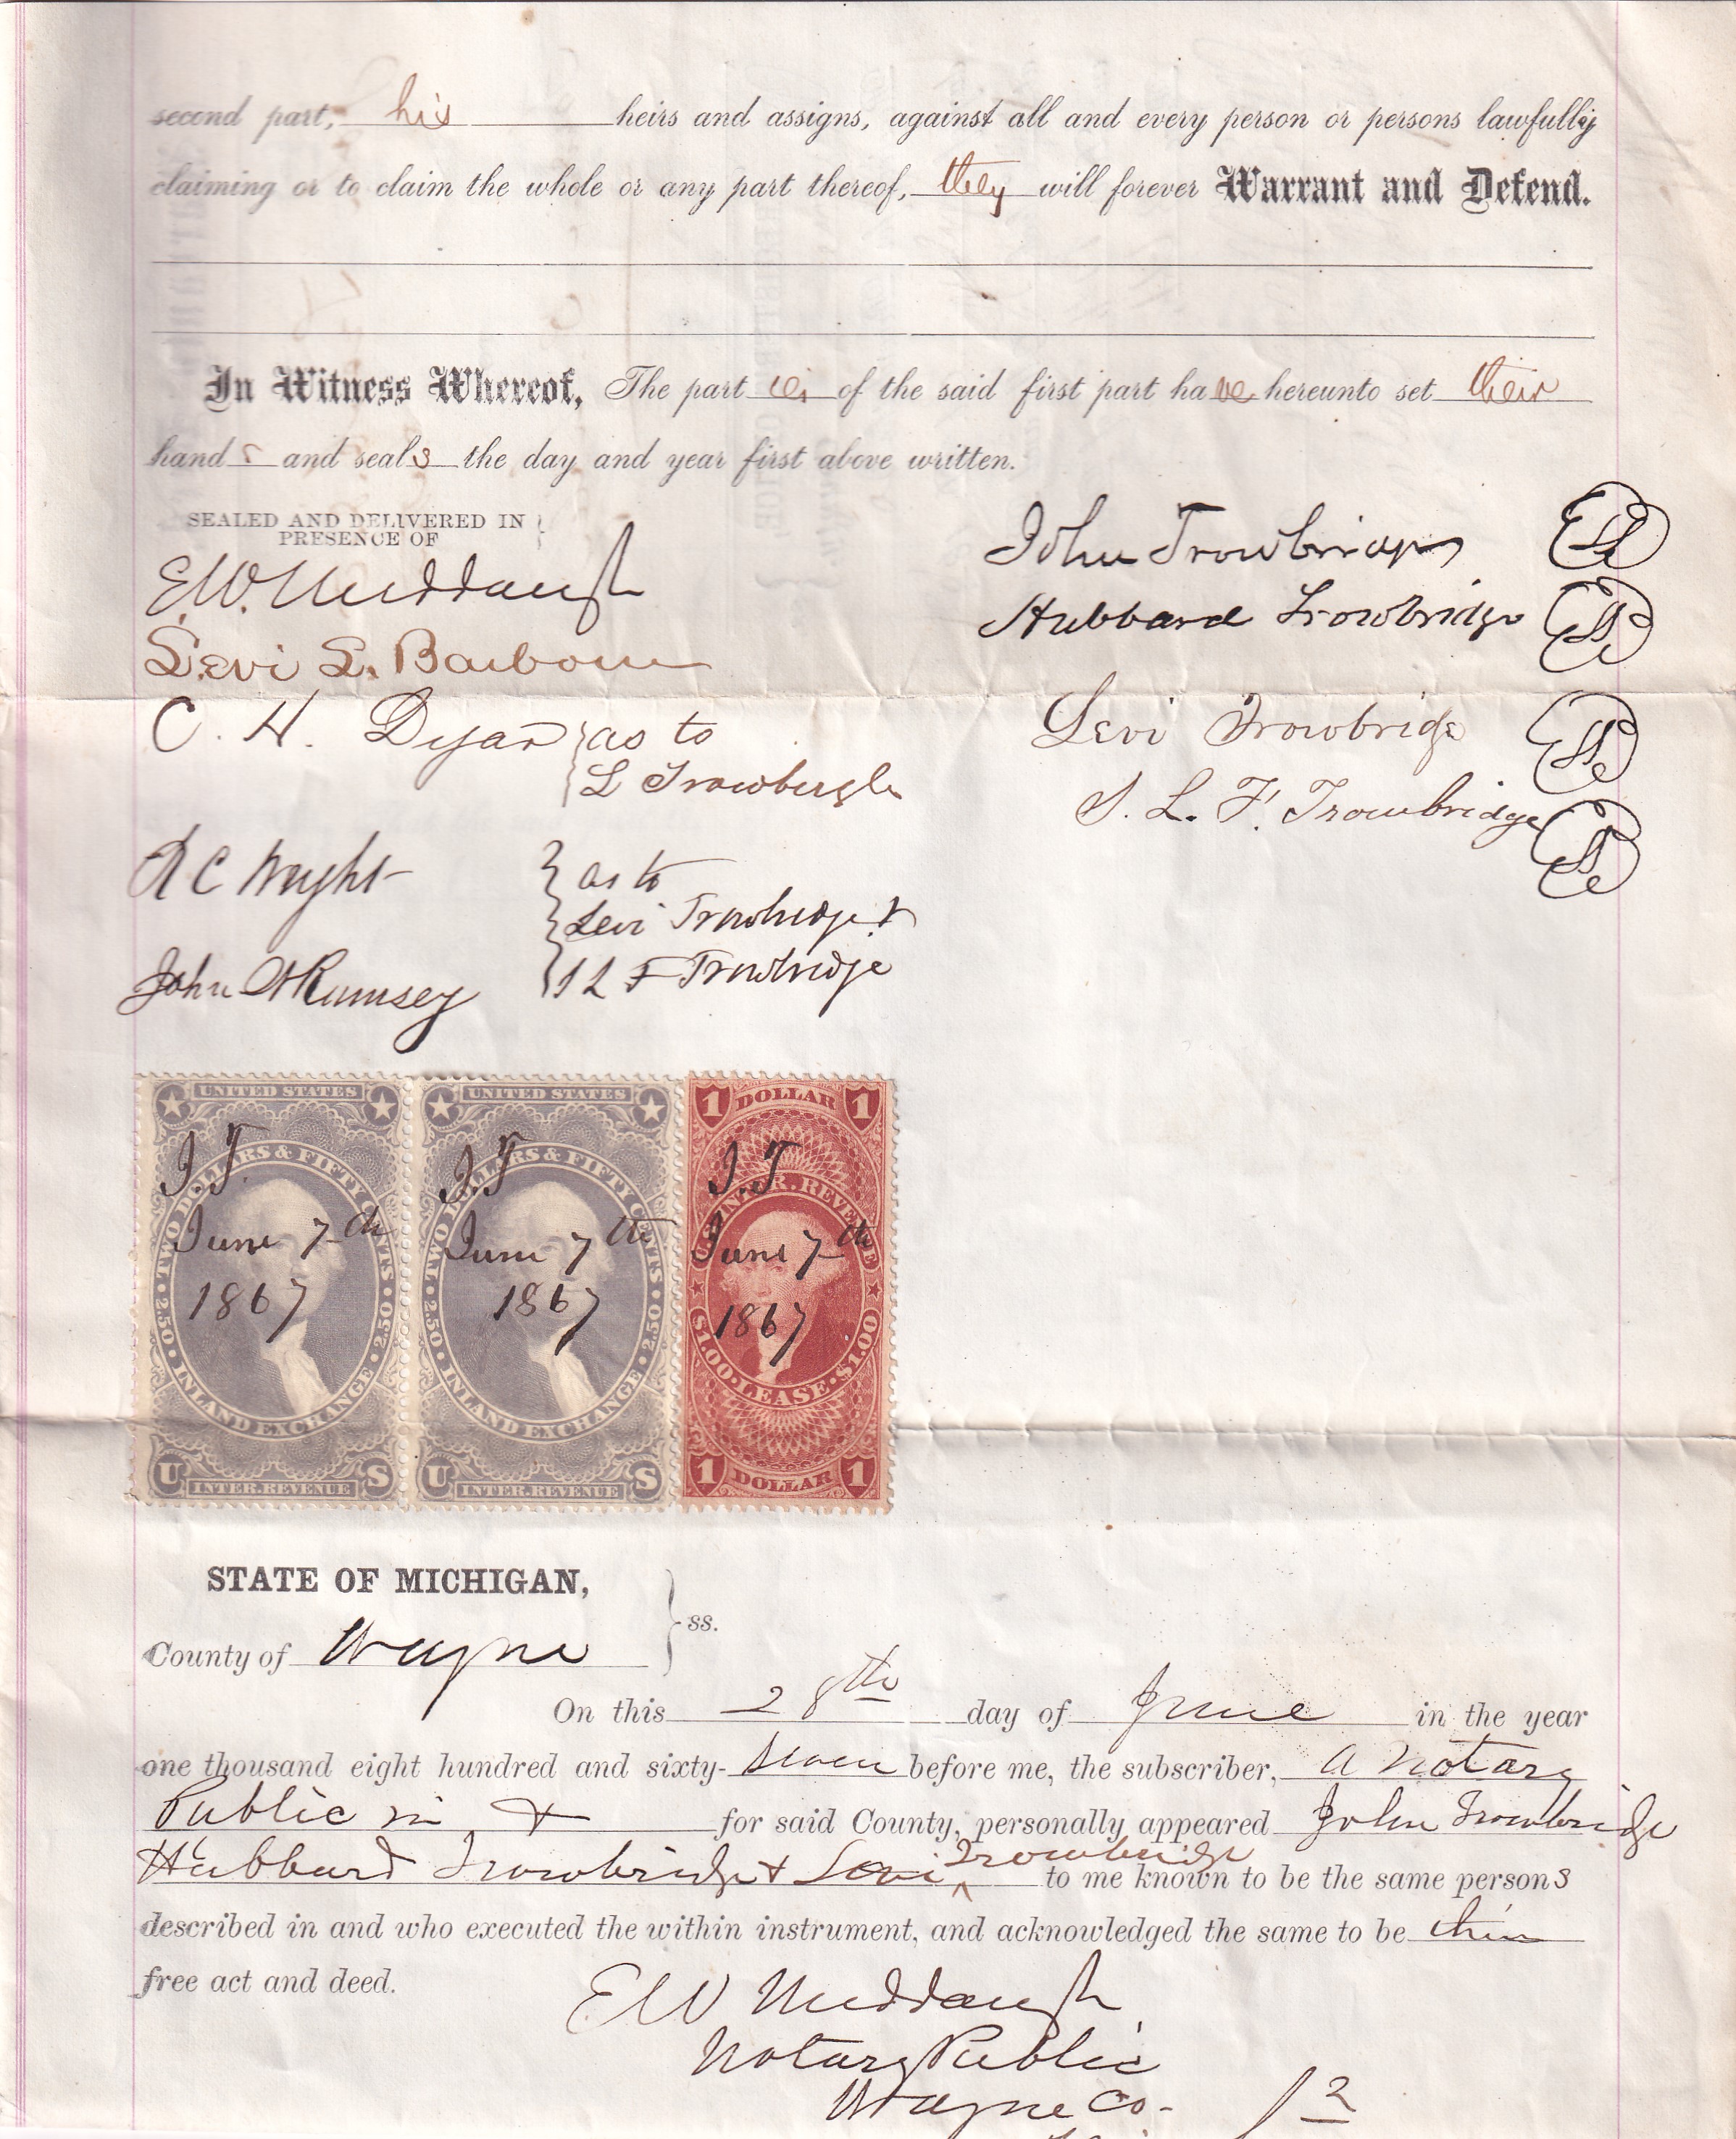 second part, his heirs and assigns, against all and every person or persons lawfully
claiming or to claim the whole or any part thereof, they will forever Warrant and Defend.
In Witness Whereof, The part ies of the said first part ha ve hereunto set their
hand s and seal s the day and year first above written.
SEALED AND DELIVERED IN
PRESENCE OF
E.W. Meddaugh
Levi L. Barbour
C. H. Dyar as to
L Trowbergle
R C Wright as to
Levi Trowbridge &
John W Rumsey
S L F Trowbridge
John Trowbridge
Hubbard Trowbridge
Levi Trowbridge
S. L. F. Trowbridge
UNITED STATES
TWO DOLLARS & FIFTY CENTS
2.50 INLAND EXCHANGE 2.50
U S
INTER. REVENUE
J.T.
June 7th
1867
UNITED STATES
TWO DOLLARS & FIFTY CENTS
2.50 INLAND EXCHANGE 2.50
U S
INTER. REVENUE
J.T
June 7th
1867
1 DOLLAR 1
U.S. INTER. REVENUE
$1.00 LEASE $1.00
1 DOLLAR 1
J.T
June 7th
1867
STATE OF MICHIGAN,
ss.
County of Wayne
On this 28th day of June in the year
one thousand eight hundred and sixty- seven before me, the subscriber, a notary
Public in & for said County, personally appeared John Trowbridge
Hubbard Trowbridge & Levi Trowbridge to me known to be the same persons
described in and who executed the within instrument, and acknowledged the same to be their
free act and deed.
E W Meddaugh
Notary Public
Wayne Co.